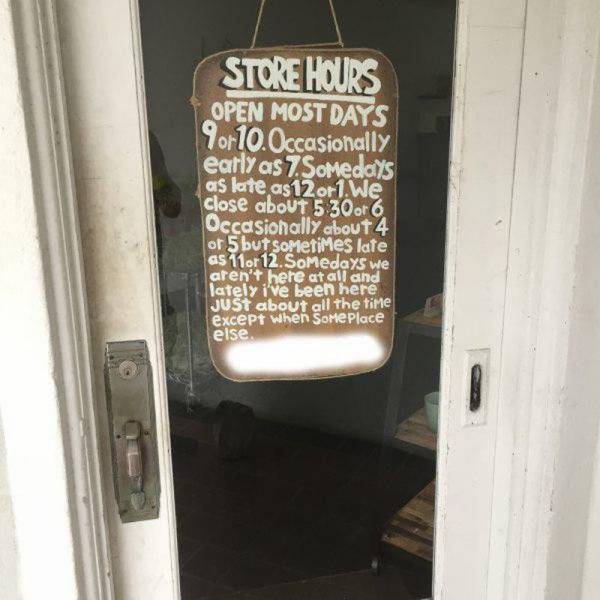 STORE HOURS
OPEN MOST DAYS
9 or 10. Occasionally
early as 7. SoMedays
as late as 12 or 1. We
close about 5:30 or 6
Occasionally about 4
or 5 but sometiMes late
as 11 or 12. SoMedays we
aren't here at all and
lately i've been here
JUSt about all the tiMe
except when SoMePlace
else.